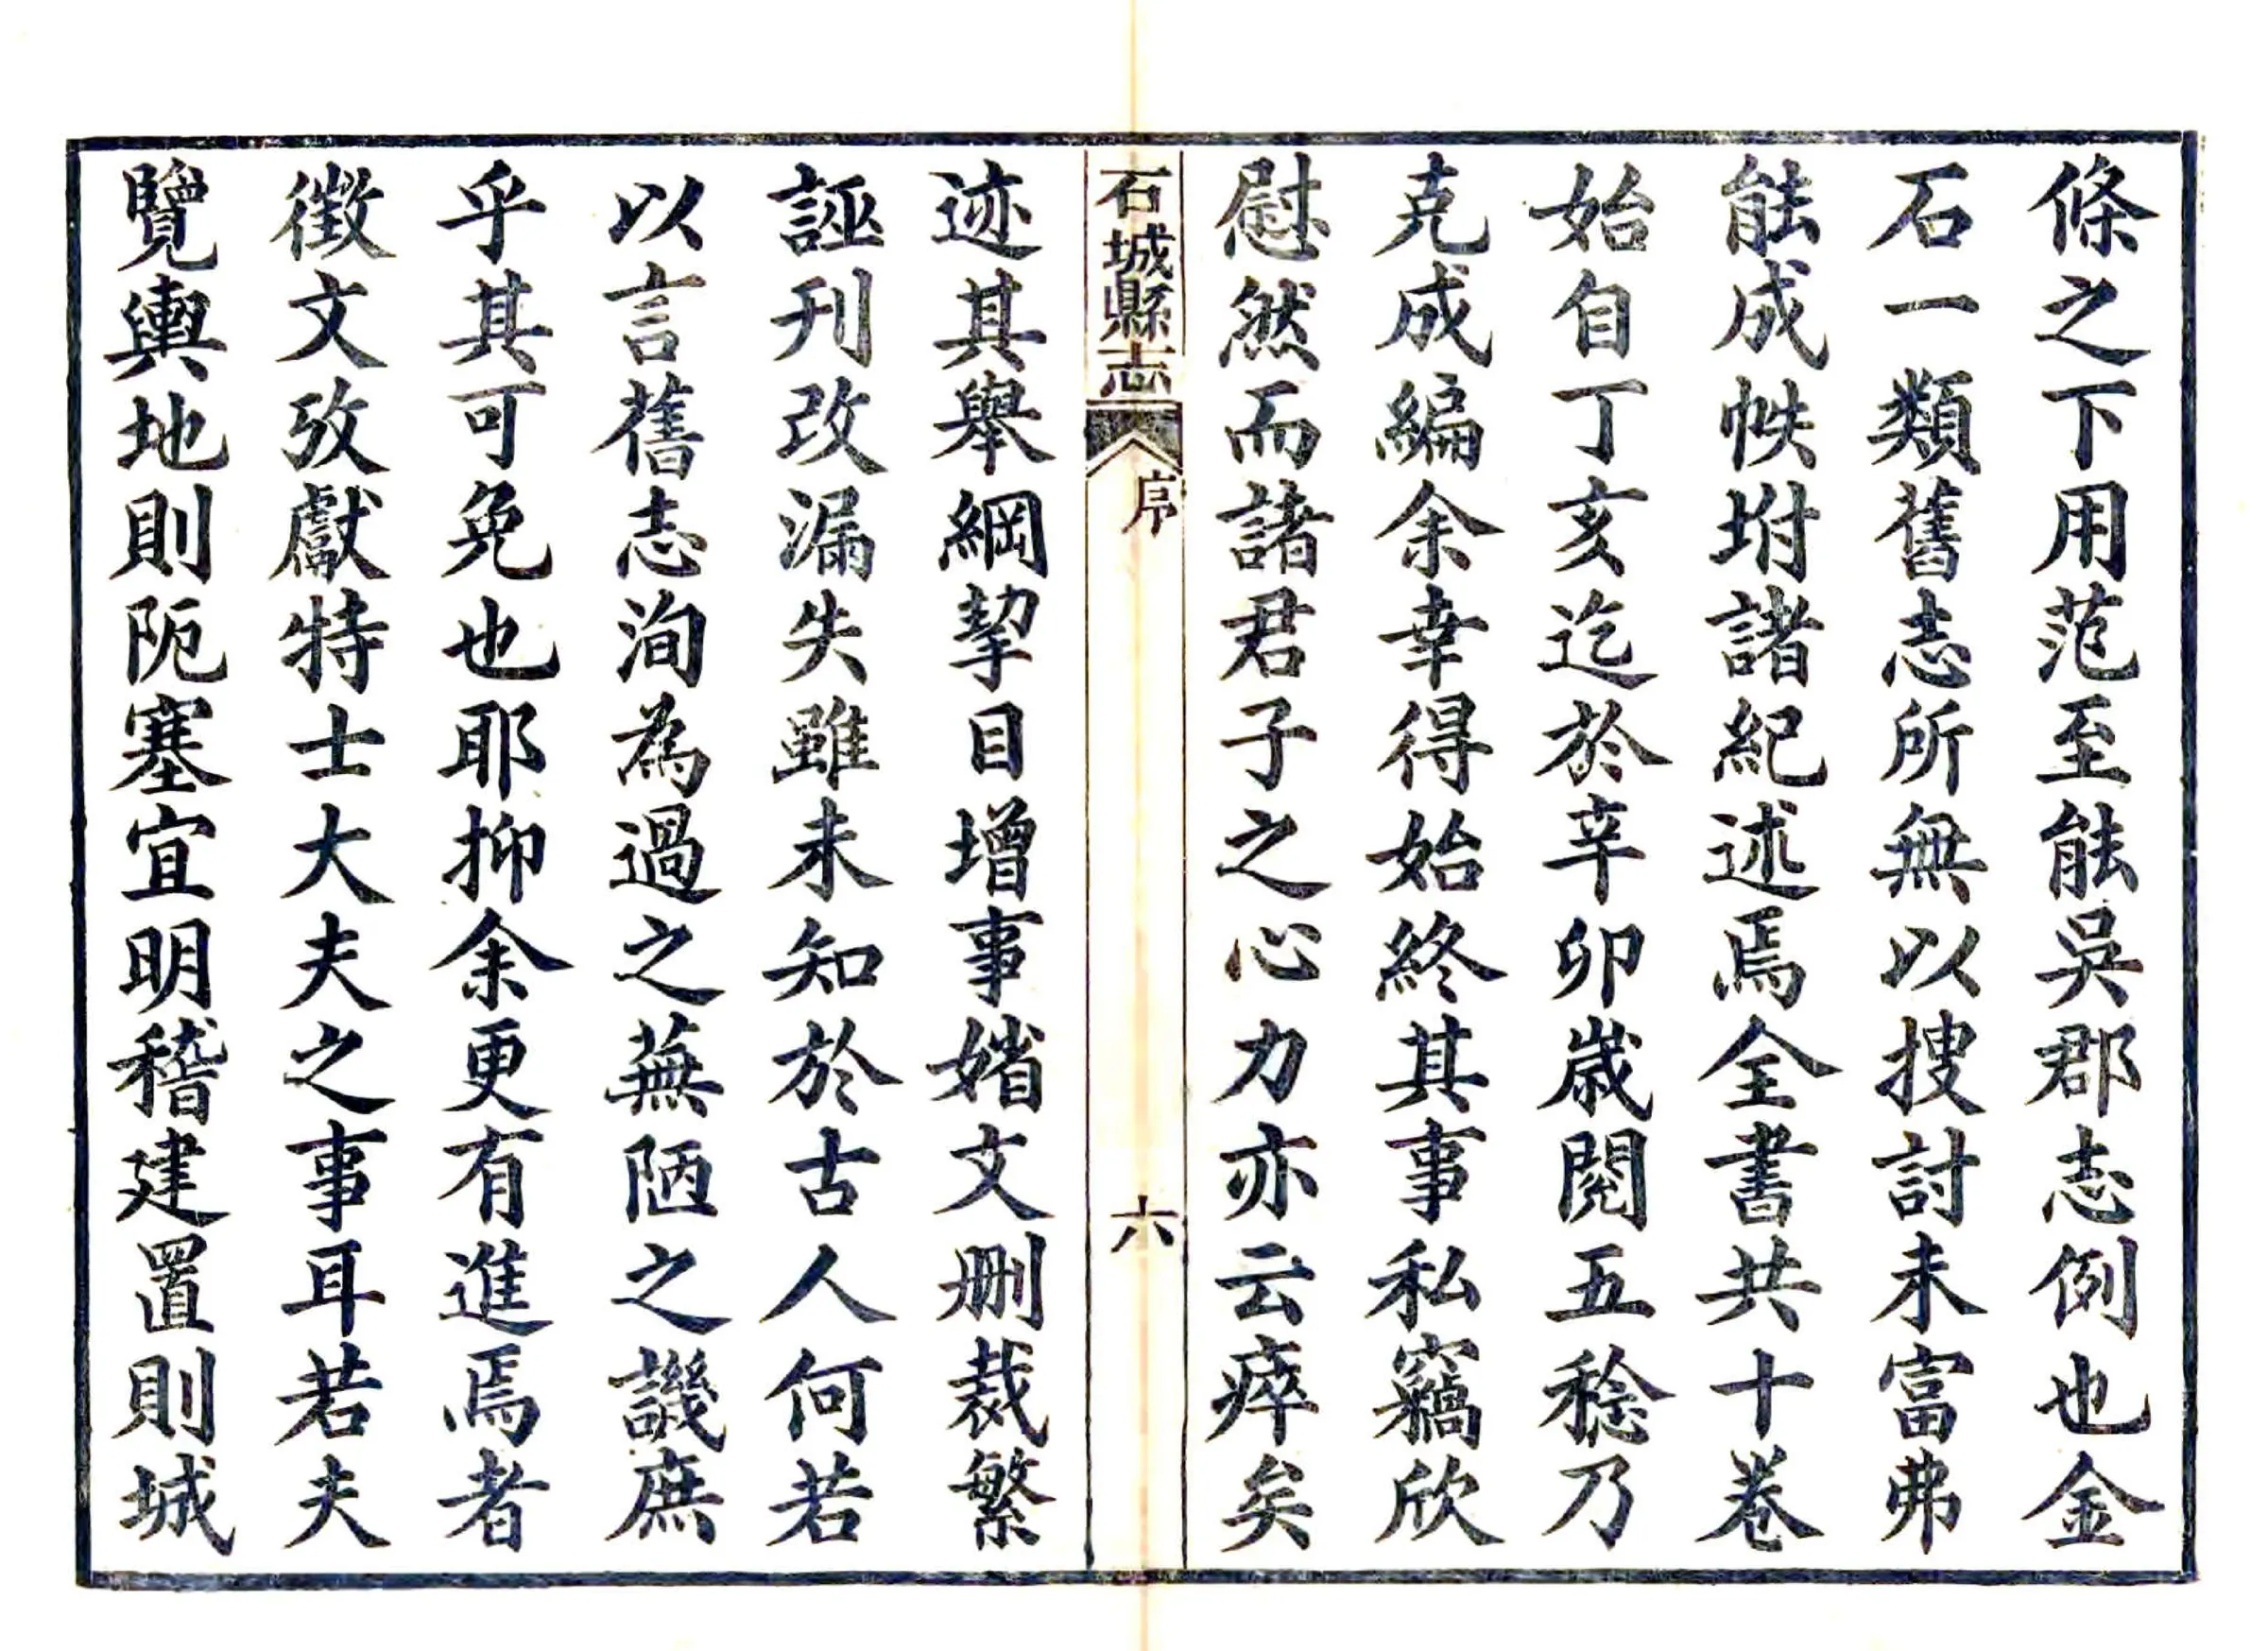 條之下用范至能吳郡志例也金
石一類舊志所無以搜討未富弗
能成帙坿諸紀述焉全書共十卷
始自丁亥迄於辛卯歲閱五稔乃
克成編余幸得始終其事私竊欣
慰然而諸君子之心力亦云瘁矣
石城縣志
序
六
迹其舉綱挈目增事媘文刪裁繁
誣刊改漏失雖未知於古人何若
以言舊志洵為過之蕪陋之譏庶
乎其可免也耶抑余更有進焉者
徵文攷獻特士大夫之事耳若夫
覽輿地則阨塞宜明稽建置則城